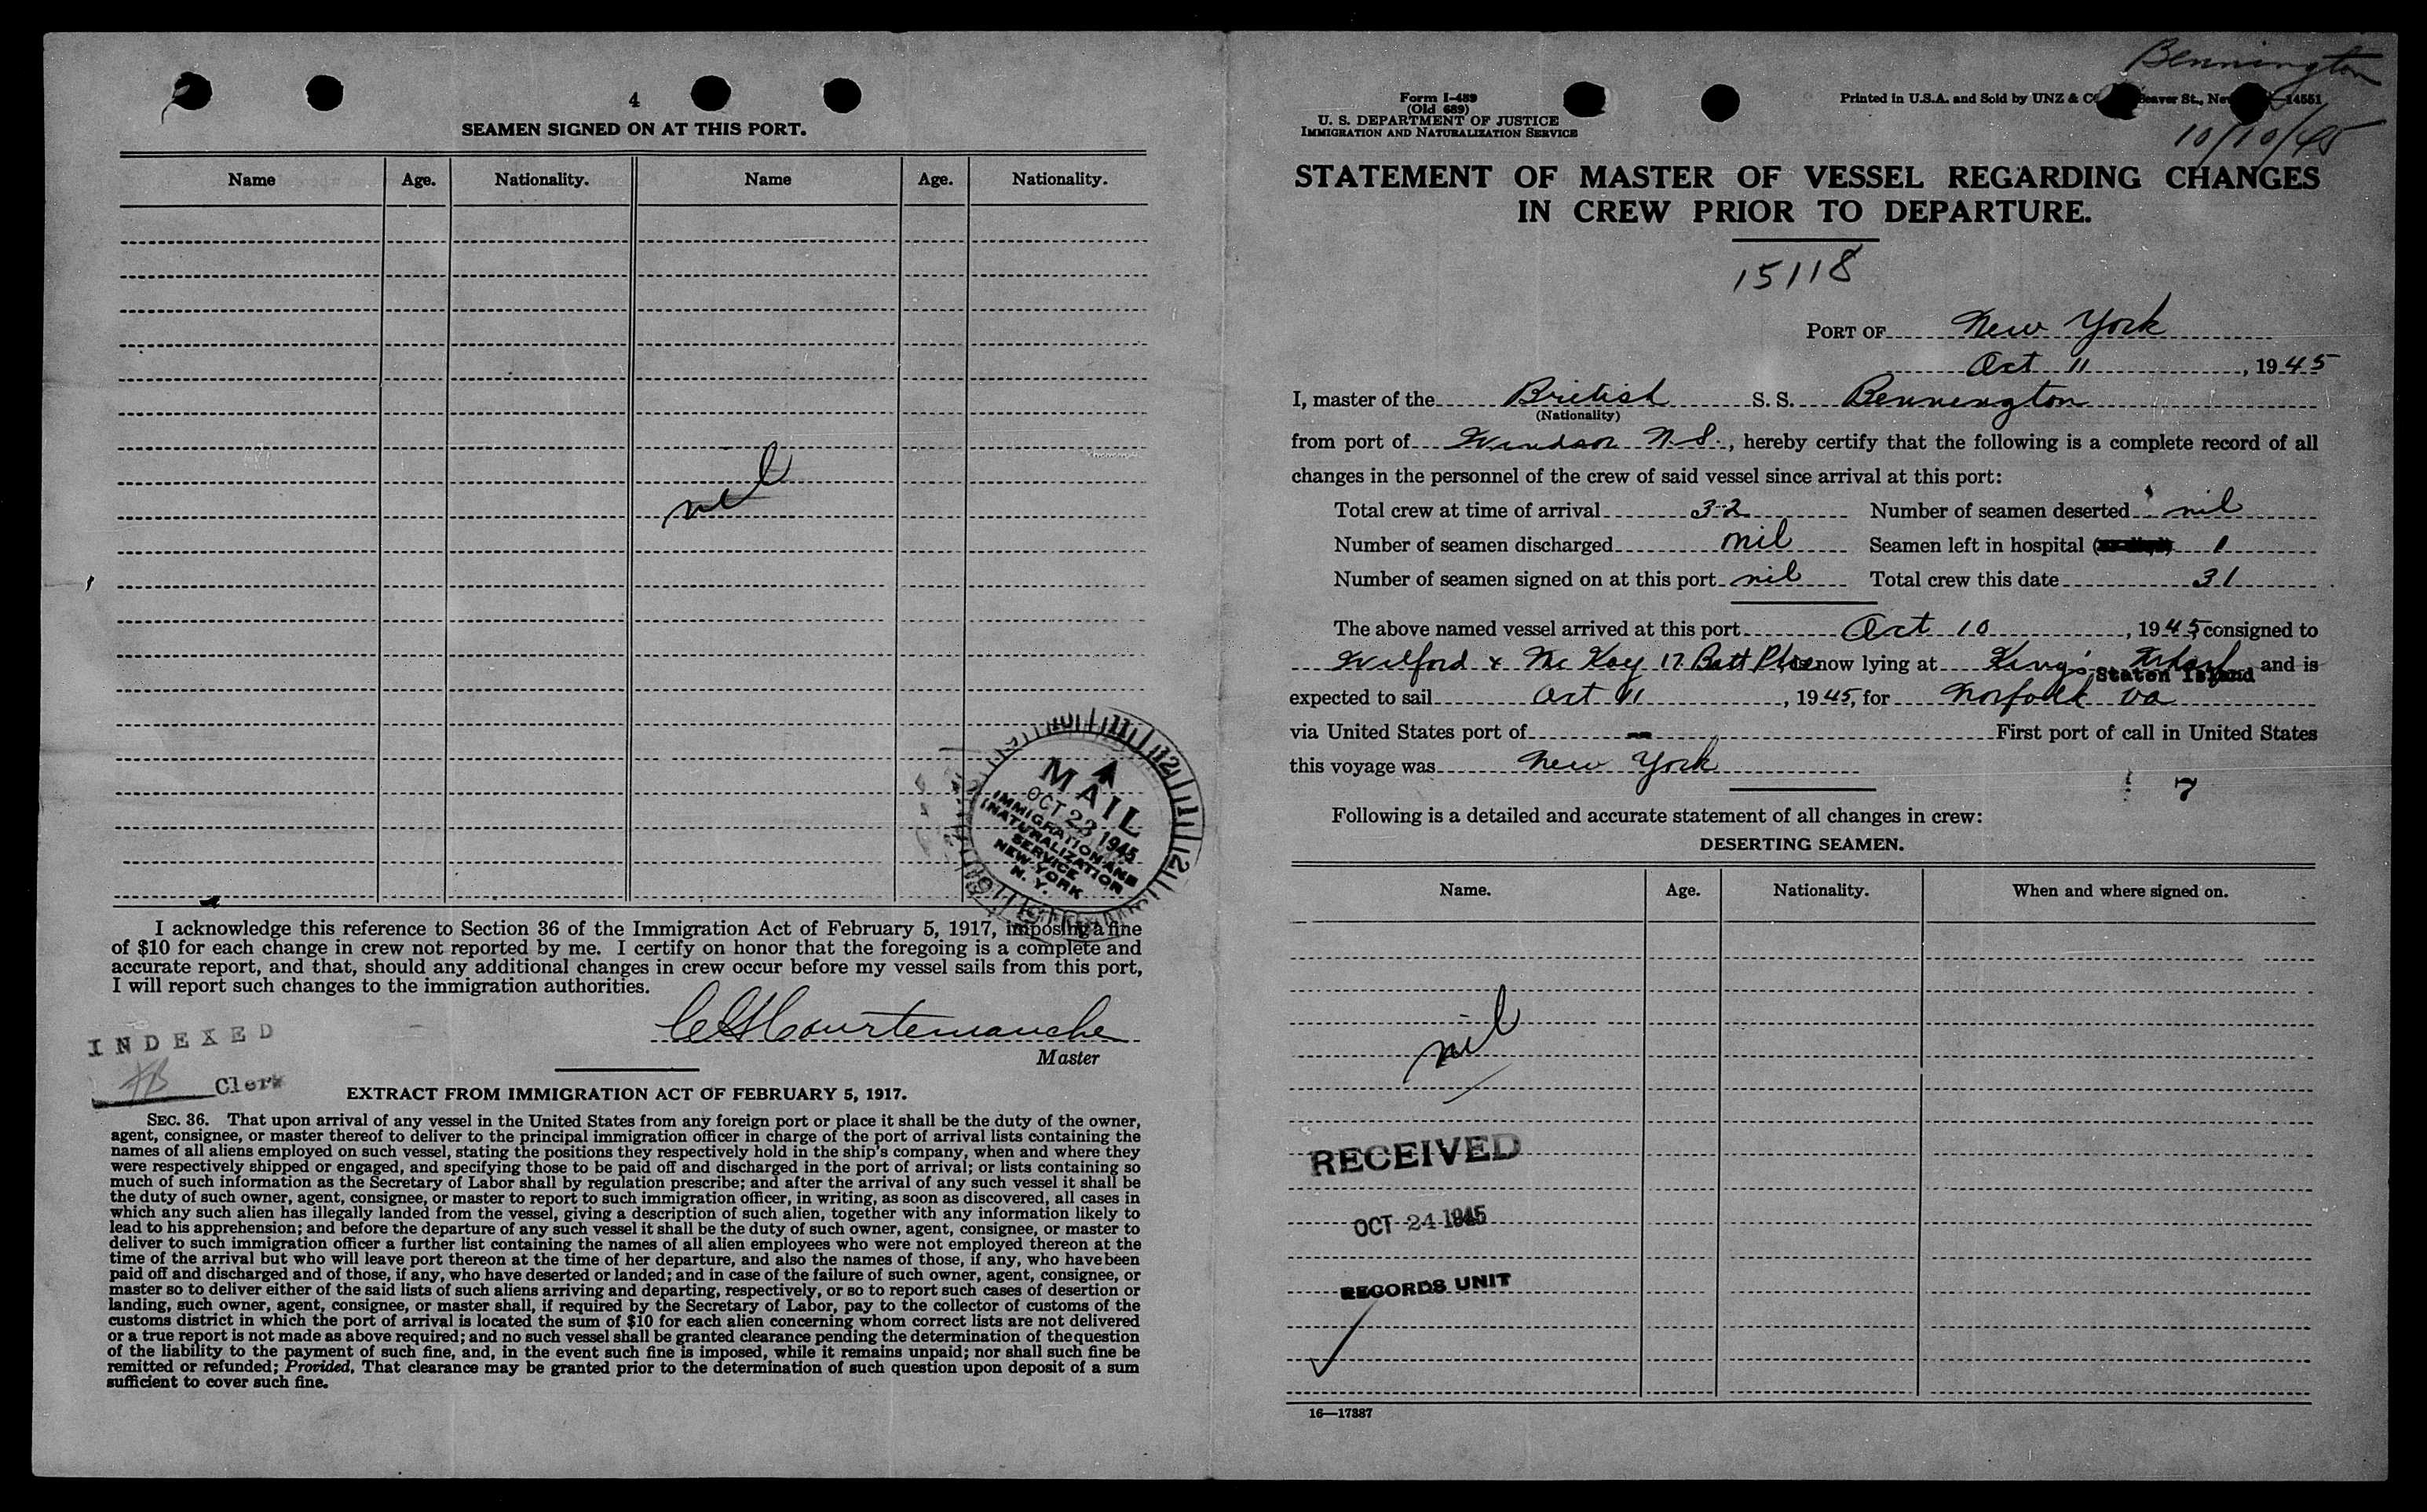 4
SEAMEN SIGNED ON AT THIS PORT.
Name Age. Nationality. Name Age. Nationality.
nil
MAIL
OCT 23 1945
IMMIGRATION AND
NATURALIZATION
SERVICE
NEW YORK
N. Y.
I acknowledge this reference to Section 36 of the Immigration Act of February 5, 1917, imposing a fine
of $10 for each change in crew not reported by me. I certify on honor that the foregoing is a complete and
accurate report, and that, should any additional changes in crew occur before my vessel sails from this port,
I will report such changes to the immigration authorities.
Courtemanche
Master
INDEXED
Clerk
EXTRACT FROM IMMIGRATION ACT OF FEBRUARY 5, 1917.
SEC. 36. That upon arrival of any vessel in the United States from any foreign port or place it shall be the duty of the owner,
agent, consignee, or master thereof to deliver to the principal immigration officer in charge of the port of arrival lists containing the
names of all aliens employed on such vessel, stating the positions they respectively hold in the ship's company, when and where they
were respectively shipped or engaged, and specifying those to be paid off and discharged in the port of arrival; or lists containing so
much of such information as the Secretary of Labor shall by regulation prescribe; and after the arrival of any such vessel it shall be
the duty of such owner, agent, consignee, or master to report to such immigration officer, in writing, as soon as discovered, all cases in
which any such alien has illegally landed from the vessel, giving a description of such alien, together with any information likely to
lead to his apprehension; and before the departure of any such vessel it shall be the duty of such owner, agent, consignee, or master to
deliver to such immigration officer a further list containing the names of all alien employees who were not employed thereon at the
time of the arrival but who will leave port thereon at the time of her departure, and also the names of those, if any, who have been
paid off and discharged and of those, if any, who have deserted or landed; and in case of the failure of such owner, agent, consignee, or
master so to deliver either of the said lists of such aliens arriving and departing, respectively, or so to report such cases of desertion or
landing, such owner, agent, consignee, or master shall, if required by the Secretary of Labor, pay to the collector of customs of the
customs district in which the port of arrival is located the sum of $10 for each alien concerning whom correct lists are not delivered
or a true report is not made as above required; and no such vessel shall be granted clearance pending the determination of the question
of the liability to the payment of such fine, and, in the event such fine is imposed, while it remains unpaid; nor shall such fine be
remitted or refunded; Provided, That clearance may be granted prior to the determination of such question upon deposit of a sum
sufficient to cover such fine.
Bennington
10/10/45
Form I-489
(Old 689)
U. S. DEPARTMENT OF JUSTICE
IMMIGRATION AND NATURALIZATION SERVICE
Printed in U.S.A. and Sold by UNZ & St., 14551
STATEMENT OF MASTER OF VESSEL REGARDING CHANGES
IN CREW PRIOR TO DEPARTURE.
15118
PORT OF New York
Oct 11, 1945
I, master of the British S. S. Bennington
(Nationality)
from port of Windsor N.S., hereby certify that the following is a complete record of all
changes in the personnel of the crew of said vessel since arrival at this port:
Total crew at time of arrival 32 Number of seamen deserted nil
Number of seamen discharged nil Seamen left in hospital 1
Number of seamen signed on at this port nil Total crew this date 31
The above named vessel arrived at this port Oct 10, 1945 consigned to
Wilford & McKay 17 Batt Place now lying at King's Wharf Staten Island and is
expected to sail Oct 11, 1945, for Norfolk Va
via United States port of — First port of call in United States
this voyage was New York
7
Following is a detailed and accurate statement of all changes in crew:
DESERTING SEAMEN.
Name. Age. Nationality. When and where signed on.
nil
RECEIVED
OCT 24 1945
RECORDS UNIT
16—17387